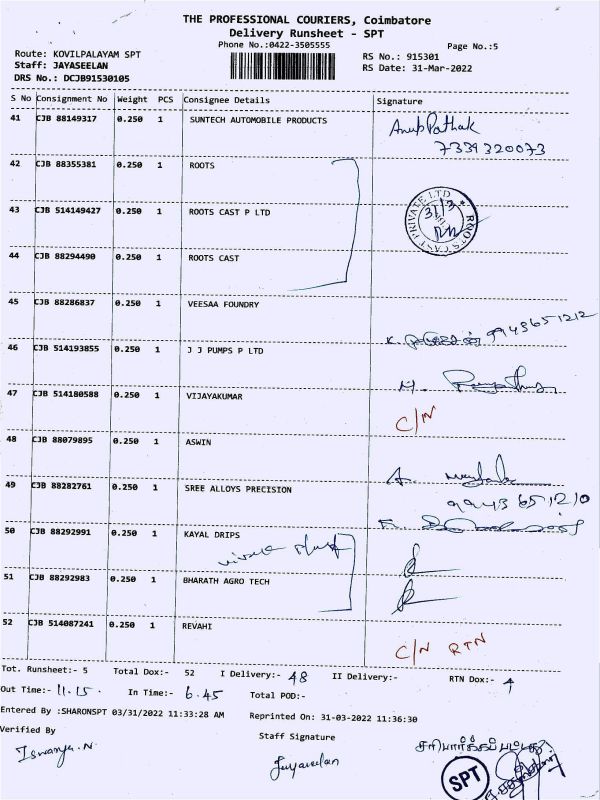 THE PROFESSIONAL COURIERS, Coimbatore
Delivery Runsheet - SPT
Phone No.:0422-3505555
Page No.:5
Route: KOVILPALAYAM SPT
Staff: JAYASEELAN
DRS No.: DCJB91530105
RS No.: 915301
RS Date: 31-Mar-2022
S No Consignment No Weight PCS Consignee Details Signature
41 CJB 88149317 0.250 1 SUNTECH AUTOMOBILE PRODUCTS Anup Pathak
7339320073
42 CJB 88355381 0.250 1 ROOTS
43 CJB 514149427 0.250 1 ROOTS CAST P LTD
ROOTS CAST PRIVATE LTD
31/3
44 CJB 88294490 0.250 1 ROOTS CAST
45 CJB 88286837 0.250 1 VEESAA FOUNDRY
K. 9943651212
46 CJB 514193855 0.250 1 J J PUMPS P LTD
M.
47 CJB 514180588 0.250 1 VIJAYAKUMAR C/N
48 CJB 88079895 0.250 1 ASWIN
A.
49 CJB 88282761 0.250 1 SREE ALLOYS PRECISION
9943651210
50 CJB 88292991 0.250 1 KAYAL DRIPS
51 CJB 88292983 0.250 1 BHARATH AGRO TECH
52 CJB 514087241 0.250 1 REVAHI C/N RTN
Tot. Runsheet:- 5 Total Dox:- 52 I Delivery:- 48 II Delivery:- RTN Dox:- 4
Out Time:- 11.15. In Time:- 6.45 Total POD:-
Entered By :SHARONSPT 03/31/2022 11:33:28 AM Reprinted On: 31-03-2022 11:36:30
Verified By Staff Signature
Iswarya.N Jayaseelan
சரிபார்க்கப்பட்டது
SPT